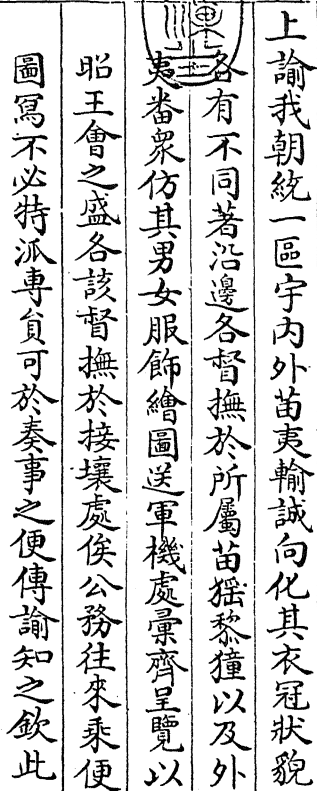 上諭我朝統一區宇内外苗夷輸誠向化其衣冠狀貌
各有不同著沿邊各督撫於所屬苗猺黎獞以及外
夷番衆仿其男女服飾繪圖送軍機處彚齊呈覽以
昭王會之盛各該督撫於接壤處俟公務往來乘便
圖寫不必特派專員可於奏事之便傳諭知之欽此